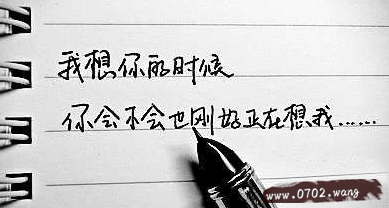 我想你的时候
你会不会也刚好正在想我......
www.0702.wang